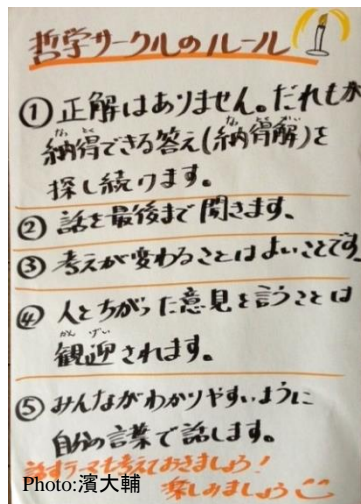 哲学サークルのルール
①正解はありません。だれもが
納得できる答え(納得解)を
なっ とく
探し続けます。
②話を最後まで聞きます。
③考えが変わることはよいことです。
④人とちがった意見を言うことは
かん げい
観迎されます。
⑤みんながわかりやすいように
自分の言葉で話します。
話すテーマも考えておきましょう!
楽しみましょう
Photo:濱大輔